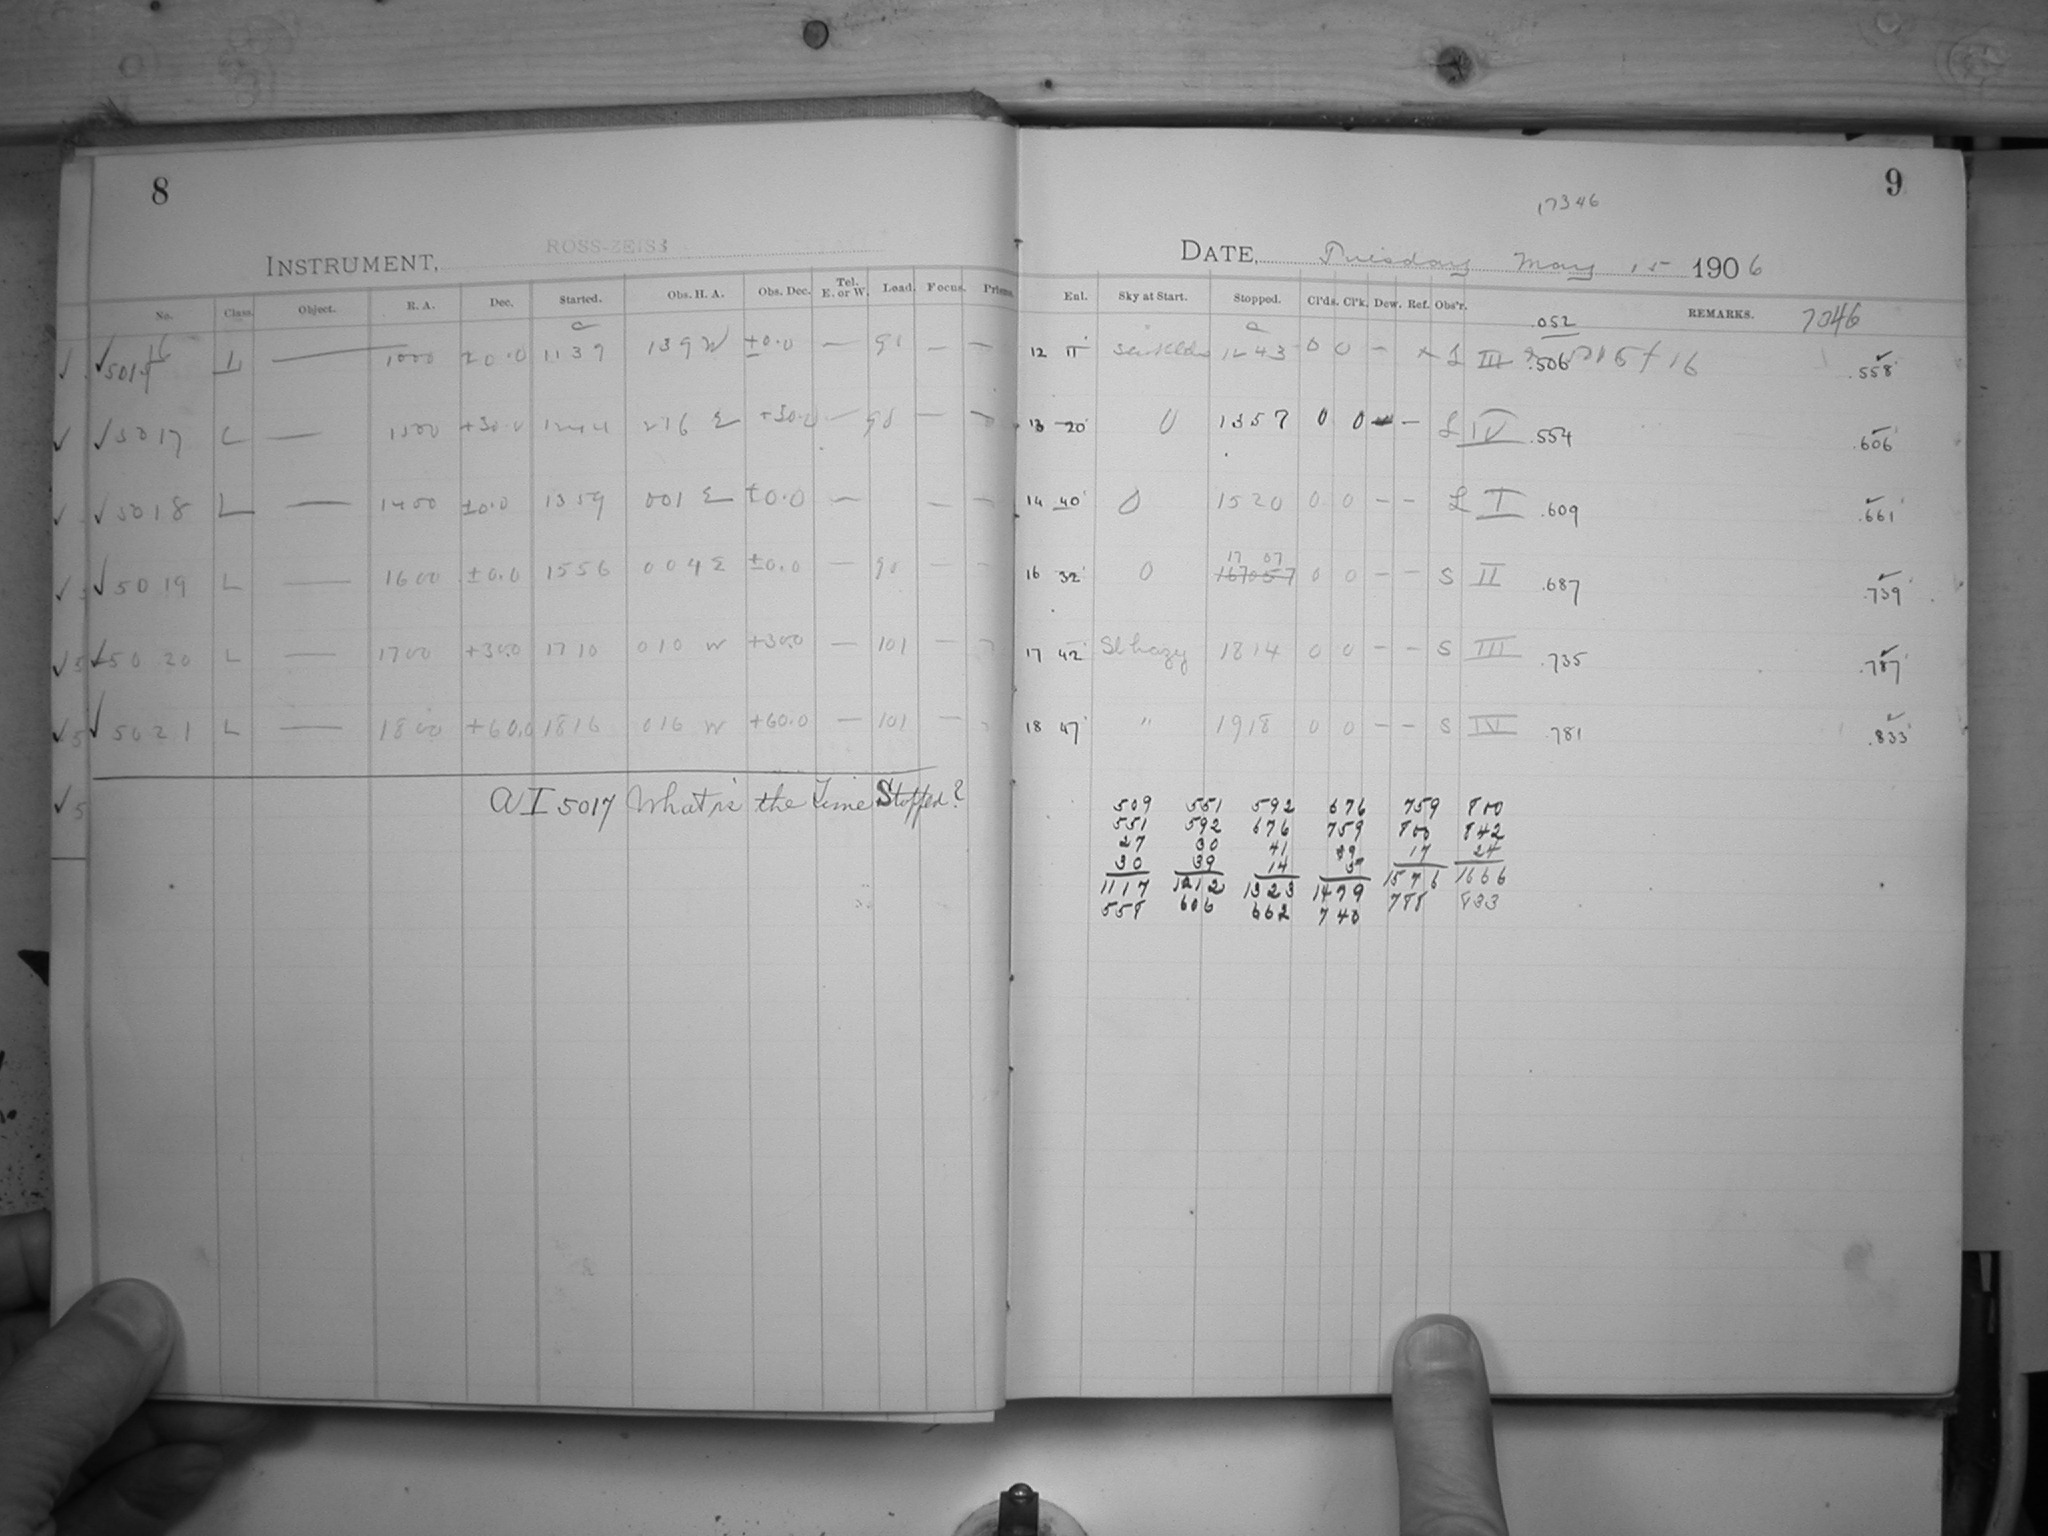 8
INSTRUMENT, ROSS-ZEISS
No. Class. Object. R. A. Dec. Started. Obs. H. A. Obs. Dec. Tel. E. or W. Load. Focus. Prisms.
✓ ✓ L — 1000 ±0.0 1139 139 W ±0.0 — 91 — —
✓ ✓ 5017 L — +30.0 1244 216 E +30.0 — 90 — —
✓ ✓ 5018 L — 1400 ±0.0 1359 001 E ±0.0 — — —
✓ 5019 L — 1600 ±0.0 1556 004 E ±0.0 — 90 — —
✓ 5 ✓ 5020 L — 1700 +30.0 1710 010 W +30.0 — 101 —
✓ 5 ✓ 5021 L — 1800 +60.0 1816 016 W +60.0 — 101 —
✓ 5
A I 5017 What is the Time Stopped?
9
17346
DATE, Tuesday May 15 1906
Exl. Sky at Start. Stopped. Cl'ds. Cl'k. Dew. Ref. Obs'r. .052 REMARKS. 7046
12 11 1243 0 0 — L III .506 16 .558 ✓
13 20 0 1357 0 0 — — L IV .554 .606 ✓
14 40 0 1520 0 0 — — L I .609 .661 ✓
17 07
16 32 0 0 0 — — S II .687 .739 ✓
17 42 Sl hazy 1814 0 0 — — S III .735 .787 ✓
18 47 " 1918 0 0 — — S IV .781 .833 ✓
509 551 592 676 759 800
551 592 676 759 800 842
27 30 41 39 17 24
30 39 14
1117 1212 1323 1479 1576 1666
558 606 662 740 788 833